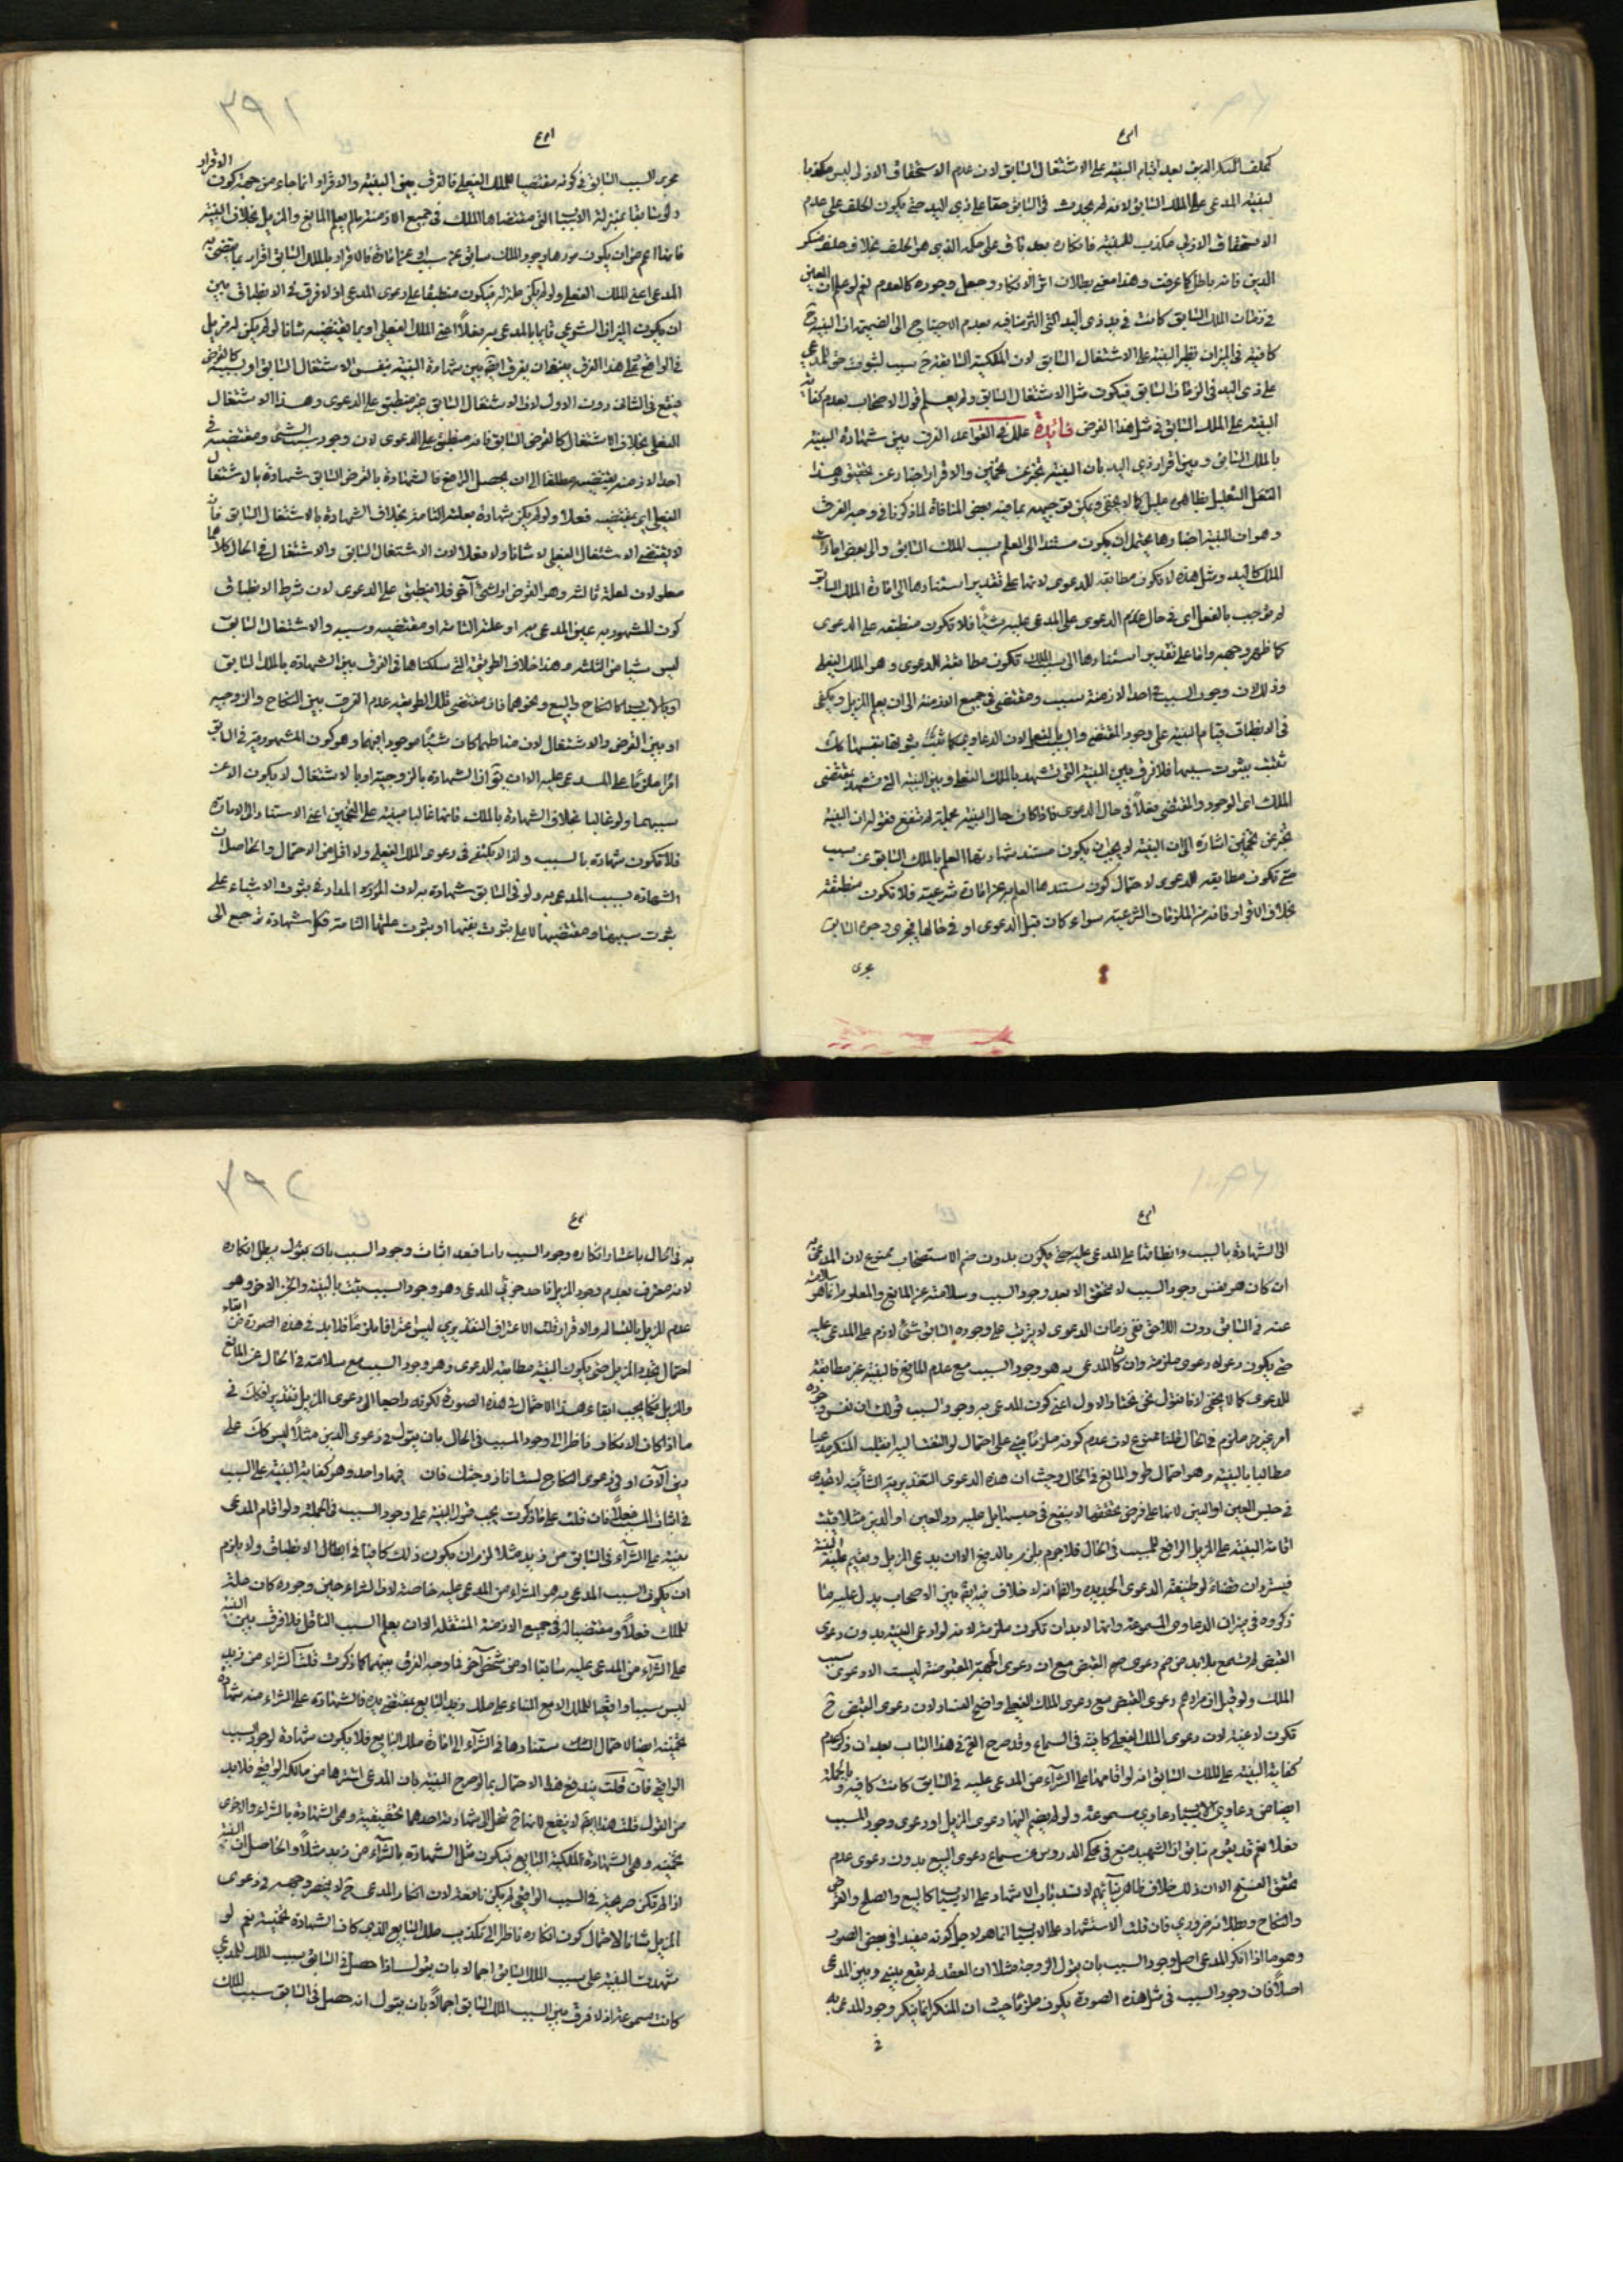 كحلف المنكر الدين بعد اقيام البينة على الاشتغال السابق لان عدم الاستحقاق الازلى ليس مكذبا
لبينة المدعى على الملك السابق لانه لم يحدث فى السابق حقا على ذى اليد حتى يكون الحلف على عدم
الاستحقاق الازلى مكذب للبينة فانكاره بعد باق على حكمه الذى هو الحلف بخلاف حلف منكر
الدين فانه باطل كما عرفت وهذا معنى بطلان اثر الانكار وجعل وجوده كالعدم نعم لو علم ان العين
فى زمان الملك السابق كانت فى يد ذى اليد
كافية فى الميزان نظير البينة على الاشتغال السابق لان الملكية السابقة ح سبب لثبوت حق للمدعى
على ذى اليد فى الزمان السابق فيكون مثل الاشتغال السابق ولم يعلم قول الاصحاب بعدم كفاية
البينة على الملك السابق فى مثل هذا الفرض فائدة علل فى القواعد الفرق بين شهادة البينة
بالملك السابق وبين اقرار ذى اليد بان البينة تخبر عن تخمين والاقرار اخبار عن تحقيق وهذا
التعليل بظاهره عليل كما لا يخفى ويمكن توجيهه بما فيه بعض المنافاة لما ذكرنا فى وجه الفرق
وهو ان البينة اخبارها يحتمل ان يكون مستندا الى العلم بسبب الملك السابق والى بعض امارات
الملك كاليد ومثل هذه لا تكون مطابقة للدعوى لانها على تقدير استنادها الى امارة الملك السابق
لم توجب بالفعل اى فى حال علم الدعوى على المدعى عليه شيئا فلا تكون منطبقة على الدعوى
كما ظهر وجهه واما على تقدير استنادها الى سبب الملك تكون مطابقة للدعوى وهو الملك الفعلى
وذلك لان وجود السبب فى احد الازمنة سبب ومقتضى فى جميع الازمنة الى ان يعلم المزيل ويكفى
فى الانطباق قيام البينة على وجود المقتضى
تثبت بثبوت سببها فلا فرق بين البينة التى تشهد بالملك الفعلى وبين البينة التى تشهد بمقتضى
الملك اى الوجود والمقتضى فعلا فى حال الدعوى فاذا كان حال البينة مجملة لم تنفع فقوله ان البينة
تخبر عن تخمين اشارة الى ان البينة لم يجب ان يكون مستند شهادتها العلم بالملك السابق عن سبب
حتى تكون مطابقة للدعوى لاحتمال كون مستندها العلم به عن امارة شرعية فلا تكون منطبقة
بخلاف الاقرار فانه من الملزمات الشرعية سواء كان قبل الدعوى او فى حالها فيجرى وجوده السابق
مجرى
٣٩١
مجرى السبب السابق فى كونه مقتضيا للملك الفعلى فالفرق بين البينة والاقرار انما جاء من جهة كون الاقرار
ولو سابقا بمنزلة الاسباب التى مقتضاها الملك فى جميع الازمنة ما لم يعلم المانع والمزيل بخلاف البينة
فانها اعم من ان يكون موردها وجود الملك سابق عن سبب او عن امارة فالاقرار بالملك السابق اقرار بما يقتضى به
المدعى اعنى الملك الفعلى ولو لم يكن علة له فيكون منطبقا على دعوى المدعى اذ لا فرق فى الانطباق بين
ان يكون الميزان الشرعى قائما بالمدعى به فعلا اعنى الملك الفعلى او بما يقتضيه شانا لو لم يكن له مزيل
فى الواقع فعلى هذا الفرق ينبغى ان يفرق ايضا بين شهادة البينة بنفس الاشتغال السابق او بسببه كالقرض
فينفع فى الثانى دون الاول لان الاشتغال السابق غير منطبق على الدعوى وهذا الاشتغال
الفعلى بخلاف الاشتغال كالقرض السابق فانه منطبق على الدعوى لان وجود سبب الشىء ومقتضيه فى
احد الازمنة يقتضيه مطلقا الى ان يحصل الرافع فالشهادة بالقرض السابق شهادة بالاشتغال
الفعلى اى بمقتضيه فعلا ولو لم يكن شهادة بعلته التامة بخلاف الشهادة بالاشتغال السابق فانه
لا يقتضى الاشتغال الفعلى لا شانا ولا فعلا لان الاشتغال السابق والاشتغال فى الحال كلاهما
معلولان لعلة ثالثة وهو القرض او لشىء آخر فلا ينطبق على الدعوى لان شرط الانطباق
كون المشهود به عين المدعى به او علته التامة او مقتضيه وسببه والاشتغال السابق
ليس شيئا من الثلثة وهذا خلاف الطريقة التى سلكناها فى الفرق بين الشهادة بالملك السابق
او بالاسباب كالنكاح والبيع ونحوهما فان مقتضى تلك الطريقة عدم الفرق بين النكاح والزوجية
او بين القرض والاشتغال لان مناطهما كان شيئا موجودا فيهما وهو كون المشهود به فى السابق
امرا ملزما على المدعى عليه الا ان يقال ان الشهادة بالزوجية او بالاشتغال لا يكون الا عن
سببهما ولو غالبا بخلاف الشهادة بالملك فانها غالبا مبنية على التخمين اعنى الاستناد الى الامارة
فلا تكون شهادة بالسبب ولذا لا يكتفى فى دعوى الملك الفعلى ولا اقل من الاحتمال والحاصل ان
الشهادة بسبب المدعى به ولو فى السابق شهادة به لان المدار فى ثبوت الاشياء على
ثبوت سببها ومقتضيها لا على ثبوت نفسها او ثبوت علتها التامة فكل شهادة ترجع الى
الى الشهادة بالسبب وانطباقها على المدعى عليه حتى يكون بدون ضم الاستصحاب ممنوع لان المدعى به
ان كان هو نفس وجود السبب لا يتحقق الا بعد وجود السبب وسلامته عن المانع والمعلوم انما هو سلامته
عنه فى السابق دون اللاحق ففى زمان الدعوى لا يترتب على وجوده السابق شىء لازم على المدعى عليه
حتى يكون دعواه دعوى ملزمة وان كان المدعى به هو وجود السبب مع عدم المانع فالبينة غير مطابقة
للدعوى كما لا يخفى لانا نقول نحن نختار الاول اعنى كون المدعى به وجود السبب قولك ان نفس وجوده
امر غير ملزم فى الحال قلنا ممنوع لان عدم كونه ملزما مبنى على احتمال لو التفت اليه انقلب المنكر مدعيا
مطالبا بالبينة وهو احتمال طرو المانع فى الحال وحيث ان هذه الدعوى التقديرية الشأنية لا تجدى
فى حبس العين او الدين لانها على فرض تحققها لا ينفع فى حبس مال عليه رد العين او الدين مثلا قبل
اقامة البينة على المزيل الرافع للسبب فى الحال فلا جرم يلزم بالدفع الا ان يدعى المزيل ويقيم عليه البينة
ذكروه فى ميزان الدعاوى المسموعة وانها لابد ان تكون ملزمة لانه لو ادعى البينة بدون دعوى
القبض لم تسمع فلابد من ضم دعوى القبض مع ان دعوى الهبة المقبوضة ليست الا دعوى سبب
الملك ولو قيل ان مرادهم دعوى القبض مع دعوى الملك الفعلى واضح الفساد لان دعوى القبض ح
تكون لاغية لان دعوى الملك الفعلى كافية فى السماع وقد صرح فى هذا الباب بعد ان ذكر عدم
كفاية البينة على الملك السابق انه لو اقامها على الشراء من المدعى عليه فى السابق كانت كافية وبالجملة
ايضا من دعاوى الاسباب دعاوى مسموعة ولو لم يضم اليها دعوى المزيل او دعوى وجود المسبب
فعلا نعم قد يقوم ان الشهيد منع فى محكى الدروس عن سماع دعوى البيع بدون دعوى عدم
تحقق الفسخ الا ان ذلك خلاف
والنكاح وبطلانه ضرورى فان قلت الاستشهاد على الاسباب انما هو لاجل كونه مفيدا فى بعض الصور
وهو ما اذا انكر المدعى اصل وجود السبب بان يقول الزوجة مثلا ان العقد لم يقع بينى وبين المدعى
اصلا فان وجود السبب فى مثل هذه الصورة يكون ملزما حيث ان المنكر انما ينكر وجود المدعى به
فى
٣٩٢
به فى الحال باعتبار انكاره وجود السبب راسا فبعد اثبات وجود السبب بان يقول بطل انكاره
لانه معترف بعدم وجود المزيل فاحد جزئى المدعى وهو وجود السبب يثبت بالبينة والجزء الاخر وهو
عدم المزيل
احتمال تجدد المزيل حتى يكون البينة مطابقة للدعوى وهو وجود السبب مع سلامته فى الحال عن المانع
والمزيل فكما يجب ابقاء هذا الاحتمال فى هذه الصورة لكونه راجعا الى دعوى المزيل تقديرا فكذلك فى
ما اذا كان الانكار ناظرا الى وجود المسبب فى الحال بان يقول فى دعوى الدين مثلا ليس لك على
دين الآن او فى دعوى النكاح لست انا زوجتك فان فيهما واحد وهو كفاية البينة على السبب
فى اثبات المسبب فعلا فان قلت على ما ذكرت يجب قبول البينة على وجود السبب فى الجملة ولو اقام المدعى
بينة على الشراء فى السابق من زيد مثلا لزم ان يكون ذلك كافيا فى الانطباق ولا يلزم
ان يكون السبب المدعى به هو الشراء من المدعى عليه خاصة لان الشراء حين وجوده كان علة
للملك فعلا ومقتضيا له فى جميع الازمنة المستقبلة الا ان يعلم السبب الناقل فلا فرق بين البينة
على الشراء من المدعى عليه سابقا او من شخص آخر فما وجه الفرق بينهما كما ذكرت قلت الشراء من زيد
ليس سببا واقعيا للملك الا مع البناء على ملك زيد البايع بمقتضى يده فالشهادة على الشراء منه شهادة
تخمينية ايضا لاحتمال استنادها فى الشراء الى امارة ملك البايع فلا يكون شهادة لوجود السبب
الواقعى فان قلت يندفع هذا الاحتمال بما لو صرح البينة بان المدعى اشتراها من مالكه الواقعى فلابد
من القول قلت هذا ايضا لا ينفع لانها ح تنحل الى شهادتين احدهما تحقيقية وهى الشهادة بالشراء والاخرى
تخمينية وهى الشهادة بملكية البايع فيكون مثل الشهادة بالشراء من زيد مثلا والحاصل ان البينة
اذا لم تكن صريحة فى السبب الواقعى لم يكن نافعة لان انكار المدعى ح لا ينحصر وجهه فى دعوى
المزيل شانا لاحتمال كون انكاره ناظرا الى تكذيب ملك البايع الذى كان الشهادة تخمينية نعم لو
شهدت البينة على سبب الملك السابق اجمالا بان يقول اذا حصل فى السابق سبب الملك للمدعى
كانت مسموعة اذ لا فرق بين السبب الملك السابق اجمالا بان يقول انه حصل فى السابق سبب الملك